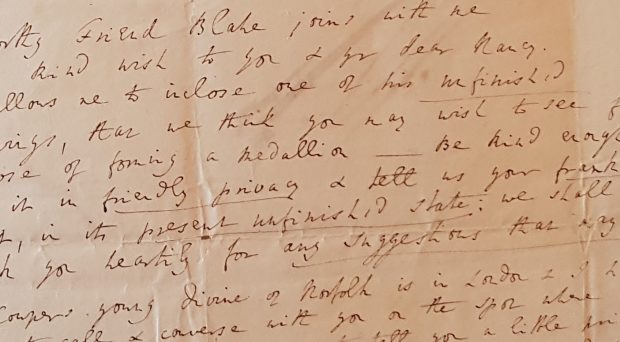 orthy Friend Blake joins with me
kind wish to you & yr dear Nancy.
llows me to inclose one of his unfinished
vings, that we think you may wish to see f
ose of forming a medallion — Be kind enough
it in friendly privacy & tell us your frank
, in its present unfinish'd state: we shall
k you heartily for any suggestions that may
Cowpers young divine of Norfolk is in London & I h
to call & converse with you on the spot where
tell you a little pri